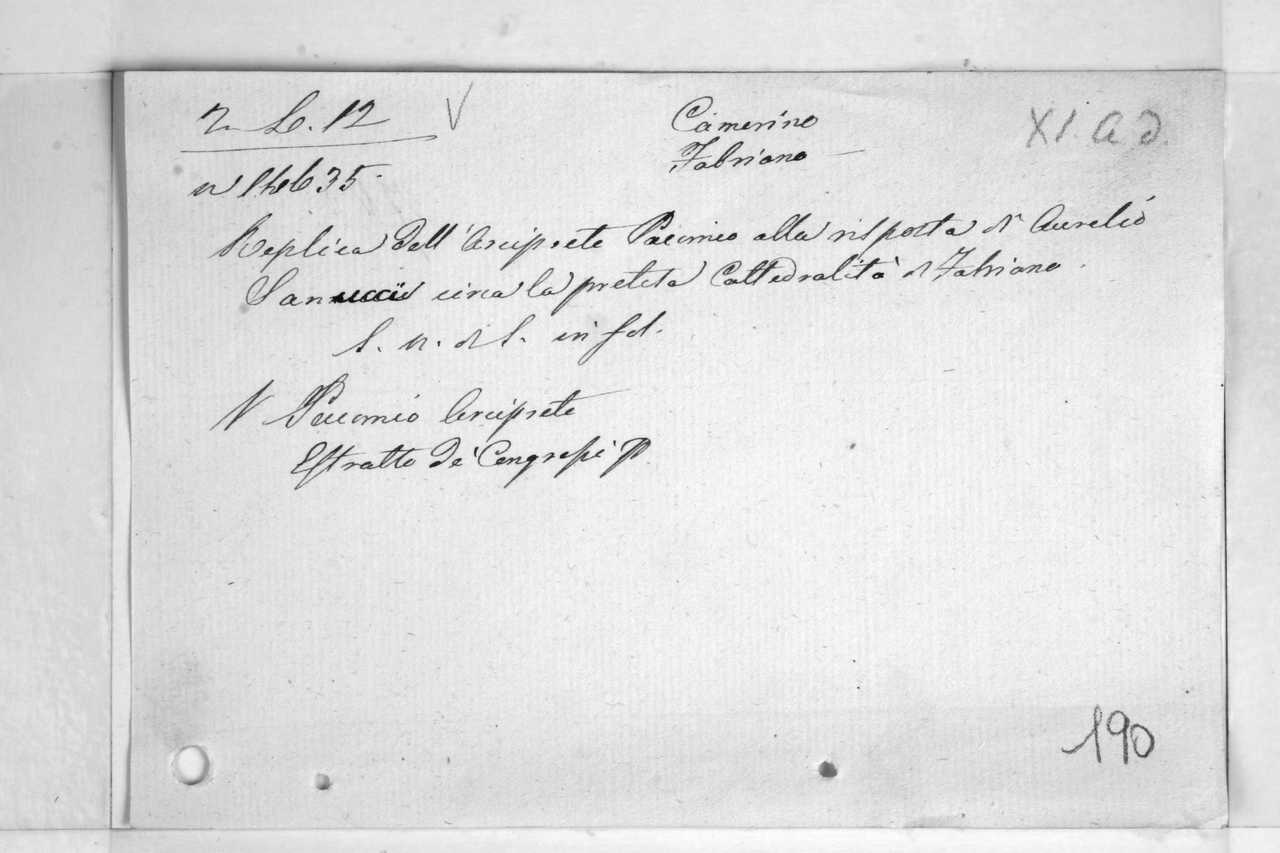 2 L. 12 V
Camerino
Fabriano
XI. A d.
n 14635.
Replica dell'Arciprete Pacomio alla risposta di Aurelio
Sannucci circa la pretesa Cattedralità di Fabriano.
S. n. di S. in fol.
V Pacomio Arciprete
Estratto de'
190